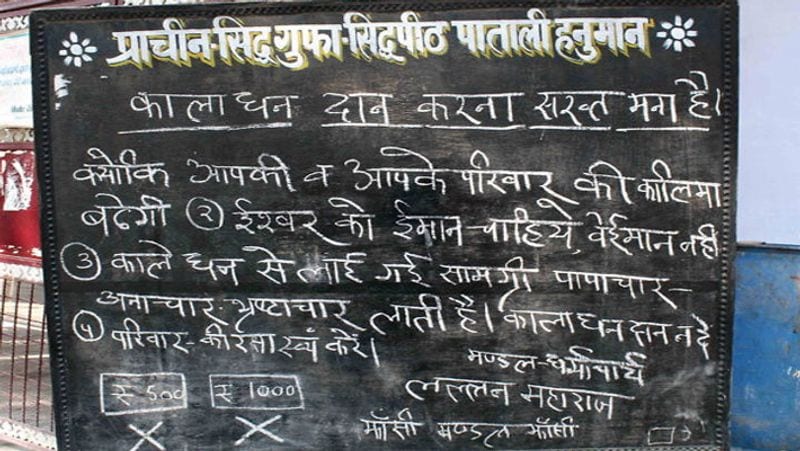 प्राचीन-सिद्ध गुफा-सिद्वपीठ पाताली हनुमान
काला धन दान करना सख्त मना है।
क्योकि आपकी व आपके परिवार की कालिमा
बढेगी ② ईश्वर को ईमान-चाहिये, बेईमान नही
③ काले धन से लाई गई सामग्री पापाचार-
अनाचार-भ्रष्टाचार लाती है। काला धन दान न दे
④ परिवार-की रक्षा स्वं करें।
मण्डल-धर्माचार्य
₹ 500 ₹ 1000
लल्लन महाराज
झाँसी मण्डल झाँसी